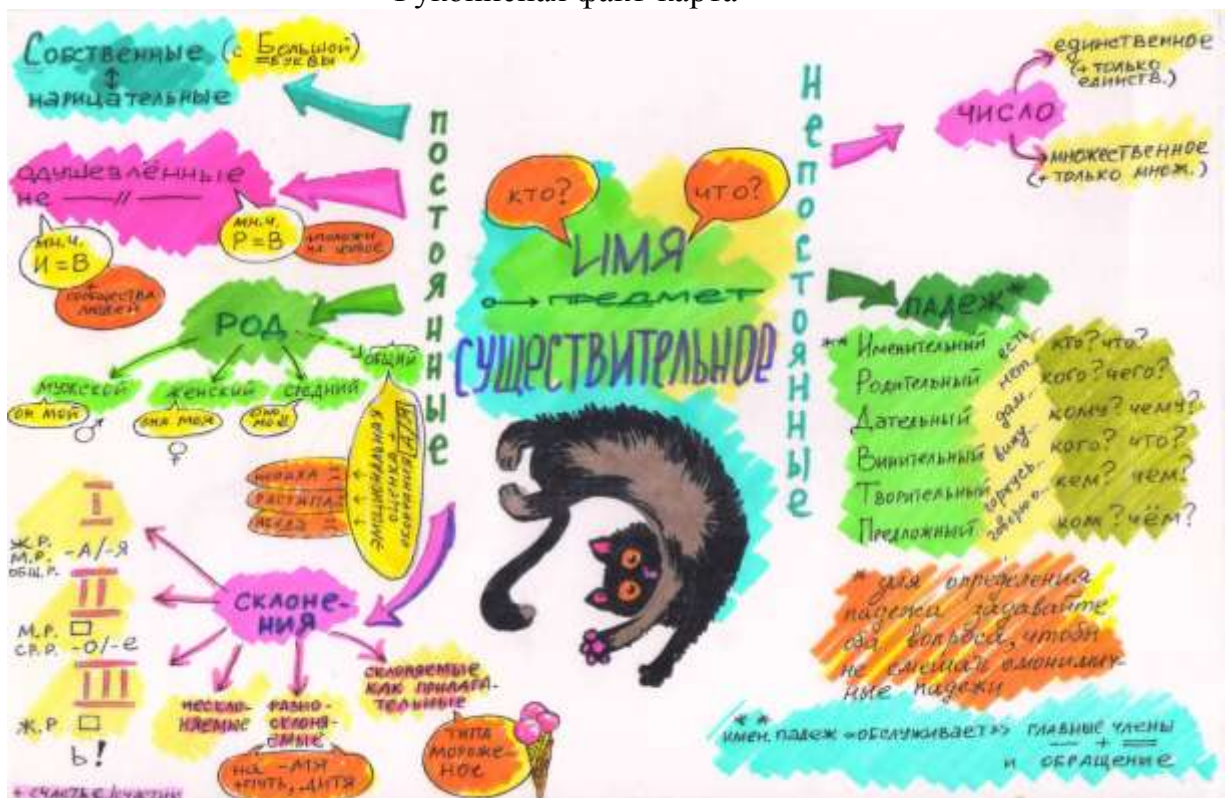 Рукописная факт-карта
Собственные (с Большой
буквы)
↕
нарицательные
одушевлённые
не —— // ——
мн.ч.
И = В
мн.ч.
Р = В
сообщества
людей
РОД
мужской
женский
средний
общий
он мой
она моя
оно
моё
♂
♀
эмоциональная
оценка +
окончания А/Я
постоянные
СКЛОНЕ-
НИЯ
I
Ж.Р.
М.Р. -А/-Я
общ.р.
II
М.Р.
СР.Р. -О/-е
III
Ж.Р
Ь!
нескло-
няемые
разно-
склоня-
емые
на -МЯ
+ путь, дитя
склоняемые
как прилага-
тельные
типа
мороже-
ное
кто?
что?
ИМЯ
предмет
СУЩЕСТВИТЕЛЬНОЕ
Непостоянные
число
единственное
(+ только
единств.)
множественное
(+ только множ.)
падеж*
** Именительный есть кто? что?
Родительный нет кого? чего?
Дательный дам кому? чему?
Винительный вижу... кого? что?
Творительный горжусь... кем? чем?
Предложный говорю... ком? чём?
* для определения
падежа задавайте
оба вопроса, чтобы
не
ные падежи
**
имен. падеж «обслуживает» главные члены
+
и обращение